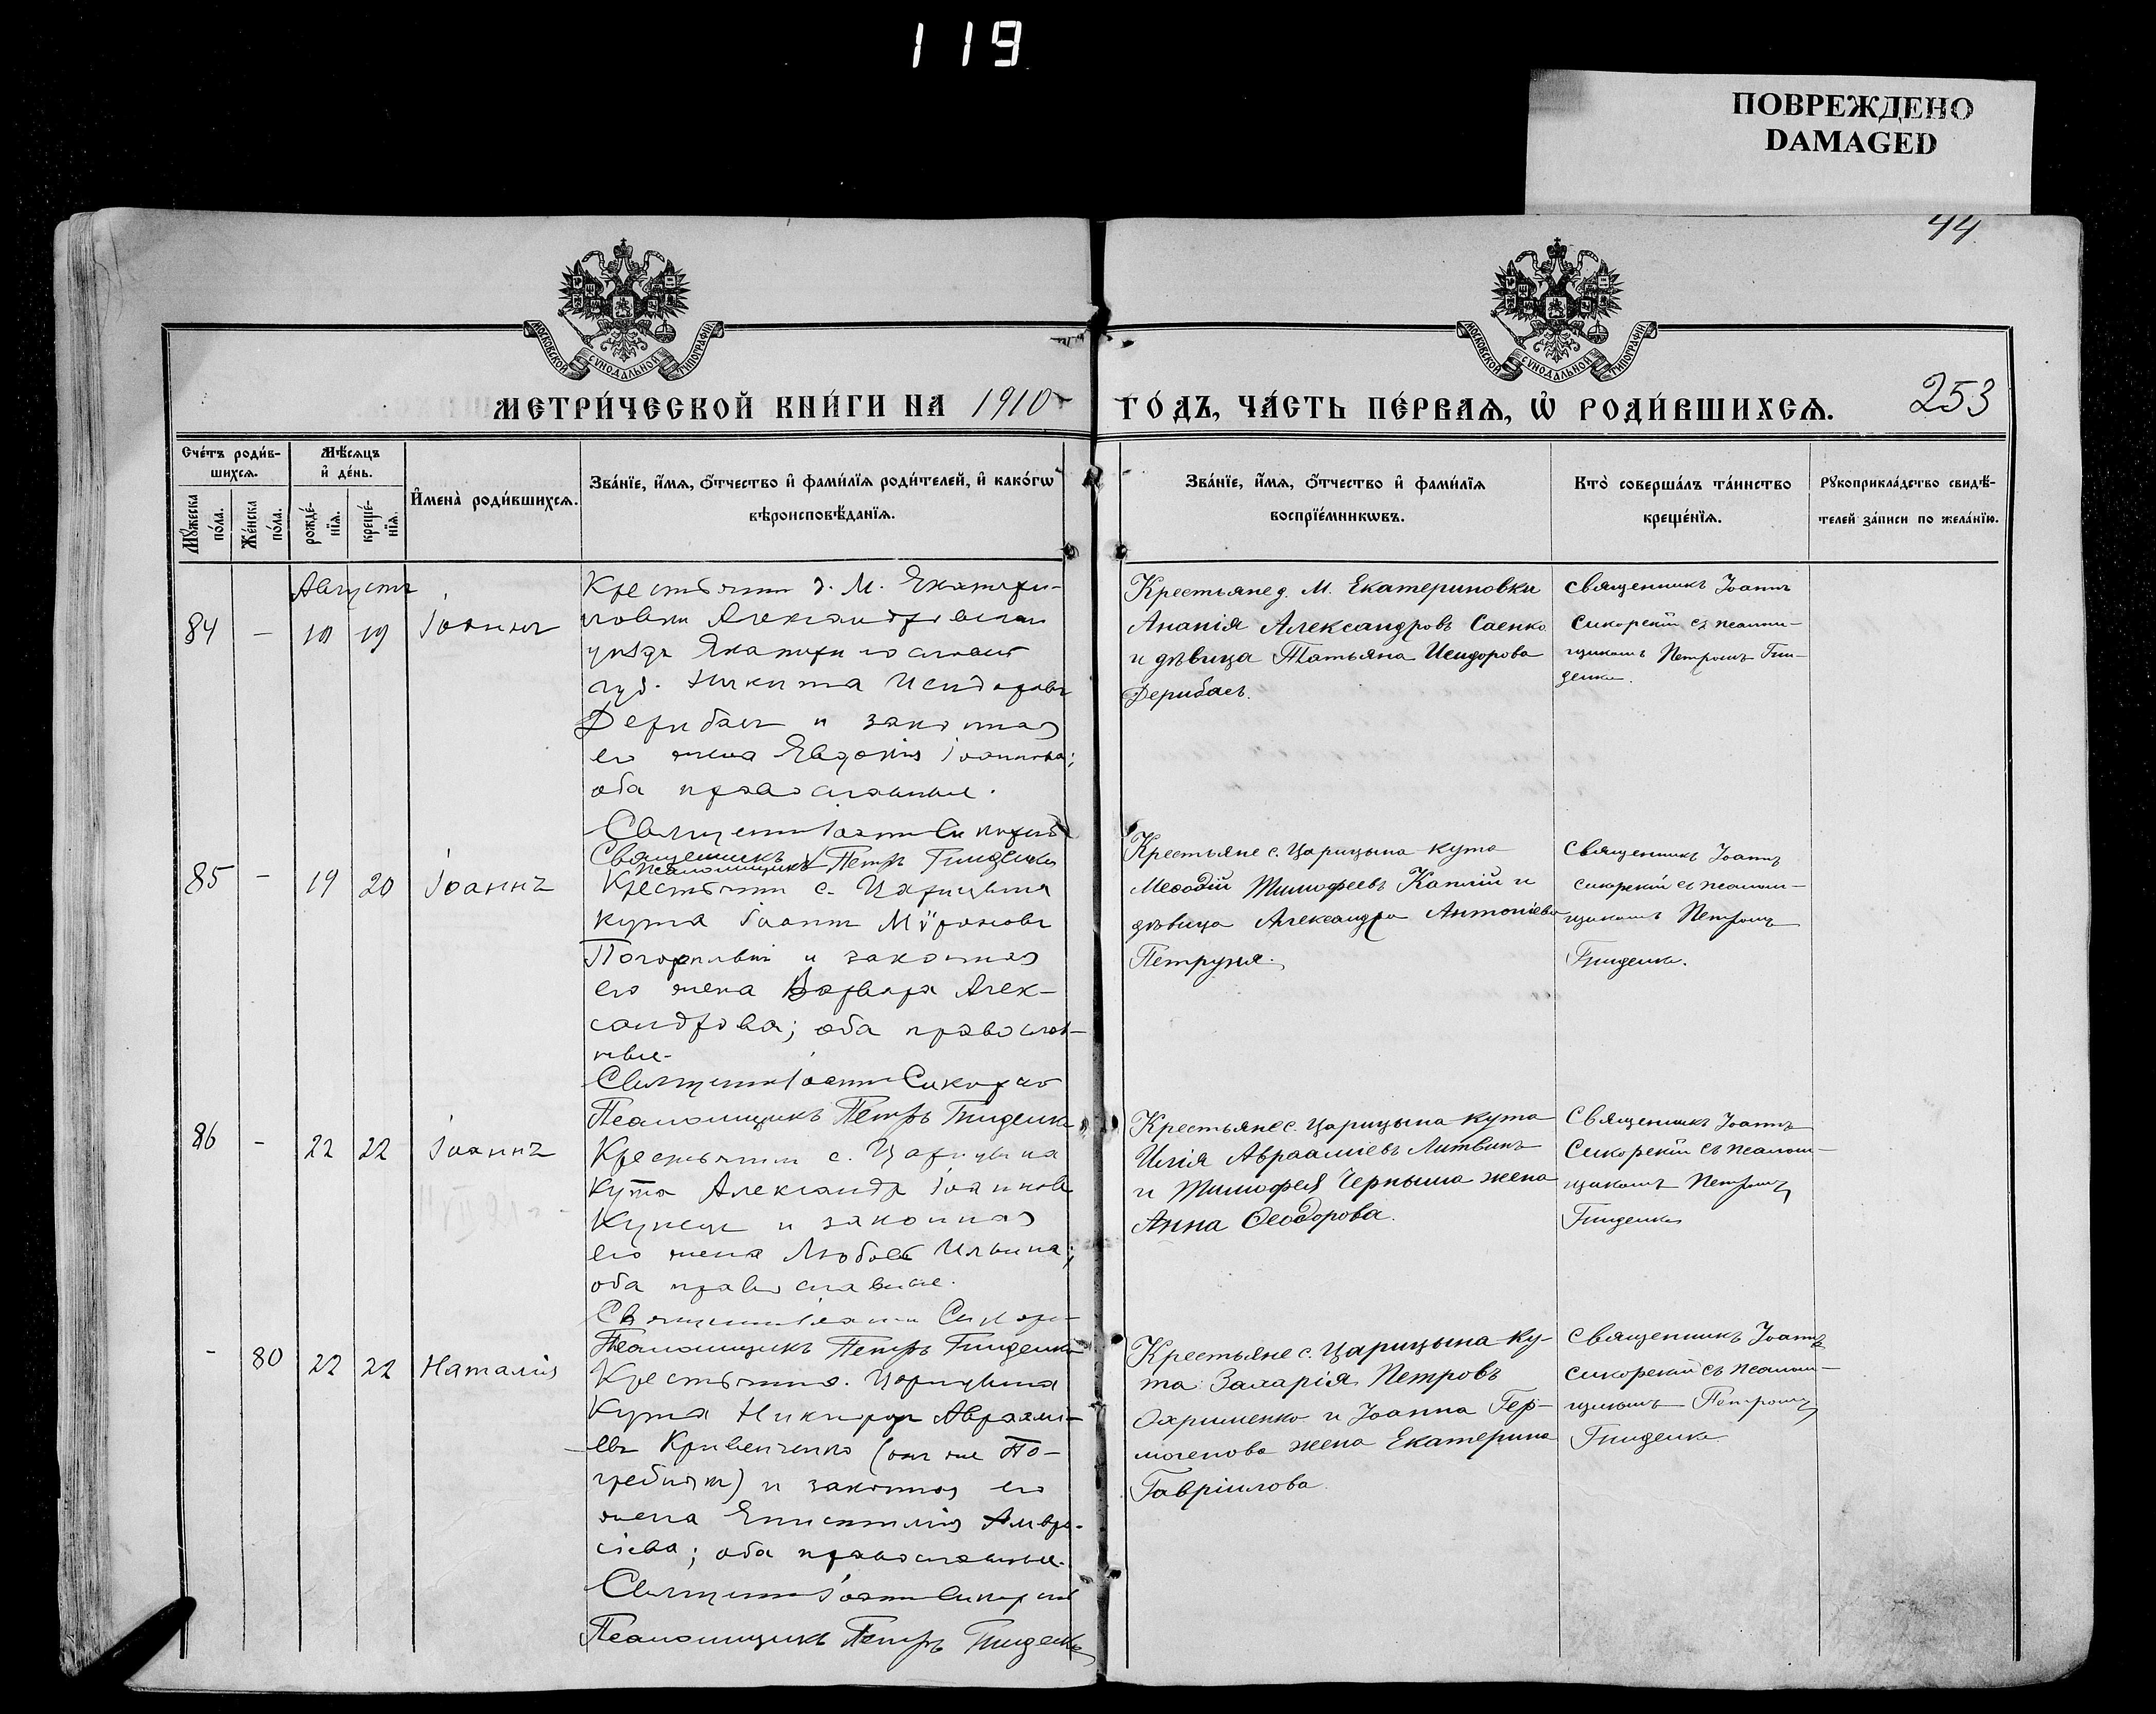 119
ПОВРЕЖДЕНО
DAMAGED
44
МОСКОВСКОЙ СѴНОДАЛЬНОЙ ТИПОГРАФІИ
МОСКОВСКОЙ СѴНОДАЛЬНОЙ ТИПОГРАФІИ
МЕТРИ́ЧЕСКОЙ КНИ́ГИ НА 1910
ГО́ДЪ, ЧА́СТЬ ПЕ́РВАѦ, Ѡ҆ РОДИ́ВШИХСѦ.
253
Сче́тъ роди́в-
шихсѧ.
Мꙋ́жеска по́ла.
Же́нска по́ла.
Мѣ́сѧцъ
и҆ де́нь.
рожде́-нїѧ.
креще́-нїѧ.
И҆мена̀ роди́вшихсѧ.
Зва́нїе, и҆́мѧ, ѻ҆́тчество и҆ фами́лїѧ роди́телей, и҆ како́гѡ
вѣроисповѣ́данїѧ.
Зва́нїе, и҆́мѧ, ѻ҆́тчество и҆ фами́лїѧ
воспрїе́мникѡвъ.
Кто̀ соверша́лъ та́инство
креще́нїѧ.
Рꙋкоприкла́дство свидѣ́-
телей за́писи по жела́нїю.
Августъ
84 — 19 19 Іоаннъ
Крестьянинъ д. М. Екатери-
новки Александровскаго
уѣзда Екатеринославск.
губ. Никита Исидоровъ
Дерибасъ и законная
его жена Евдокія Іоаннова;
оба православные.
Священникъ Іоаннъ Сикорскій
Священникъ
Псаломщикъ Петръ Гниденко
Крестьяне д. М. Екатериновки
Ананія Александровъ Саенко
и дѣвица Татьяна Исидорова
Дерибасъ.
Священникъ Іоаннъ
Сикорскій съ псалом-
щикомъ Петромъ Гни-
денко.
85 — 19 20 Іоаннъ
Крестьянинъ с. Царицына
кута Іоаннъ Мѵроновъ
и законная
его жена Варвара Алек-
сандрова; оба православ-
ные.
Священникъ Іоаннъ Сикорскій
Псаломщикъ Петръ Гниденко
Крестьяне с. Царицына кута
Меѳодій Тимофеевъ Каплій и
дѣвица Александра Антоніева
Петруня.
Священникъ Іоаннъ
Сикорскій съ псалом-
щикомъ Петромъ
Гниденко.
86 — 22 22 Іоаннъ
Крестьянинъ с. Царицына
Кута Александръ Іоанновъ
Купецъ и законная
его жена Любовь Ильина;
оба православные.
Священникъ Іоаннъ Сикорс-
Псаломщикъ Петръ Гниденко
Крестьяне с. Царицына-кута
Илія Авраамiевъ Литвинъ
и Тимофея Черныша жена
Анна Ѳеодорова.
Священникъ Іоаннъ
Сикорскій съ псалом-
щикомъ Петромъ
Гниденко
— 80 22 22 Наталія
Крестьянинъ с. Царицына
Кута Никифоръ Авраамі-
евъ Кривенченко (онъ же По-
гребнякъ) и законная его
жена Епистимія Амвро-
сіева; оба православные.
Священникъ Іоаннъ Сикорскій
Псаломщикъ Петръ Гниденко
Крестьяне с. Царицына-Ку-
та: Захарія Петровъ
Охрименко и Іоанна Гер-
могенова жена Екатерина
Гавріилова.
Священникъ Іоаннъ
Сикорскій съ псалом-
щикомъ Петромъ
Гниденко